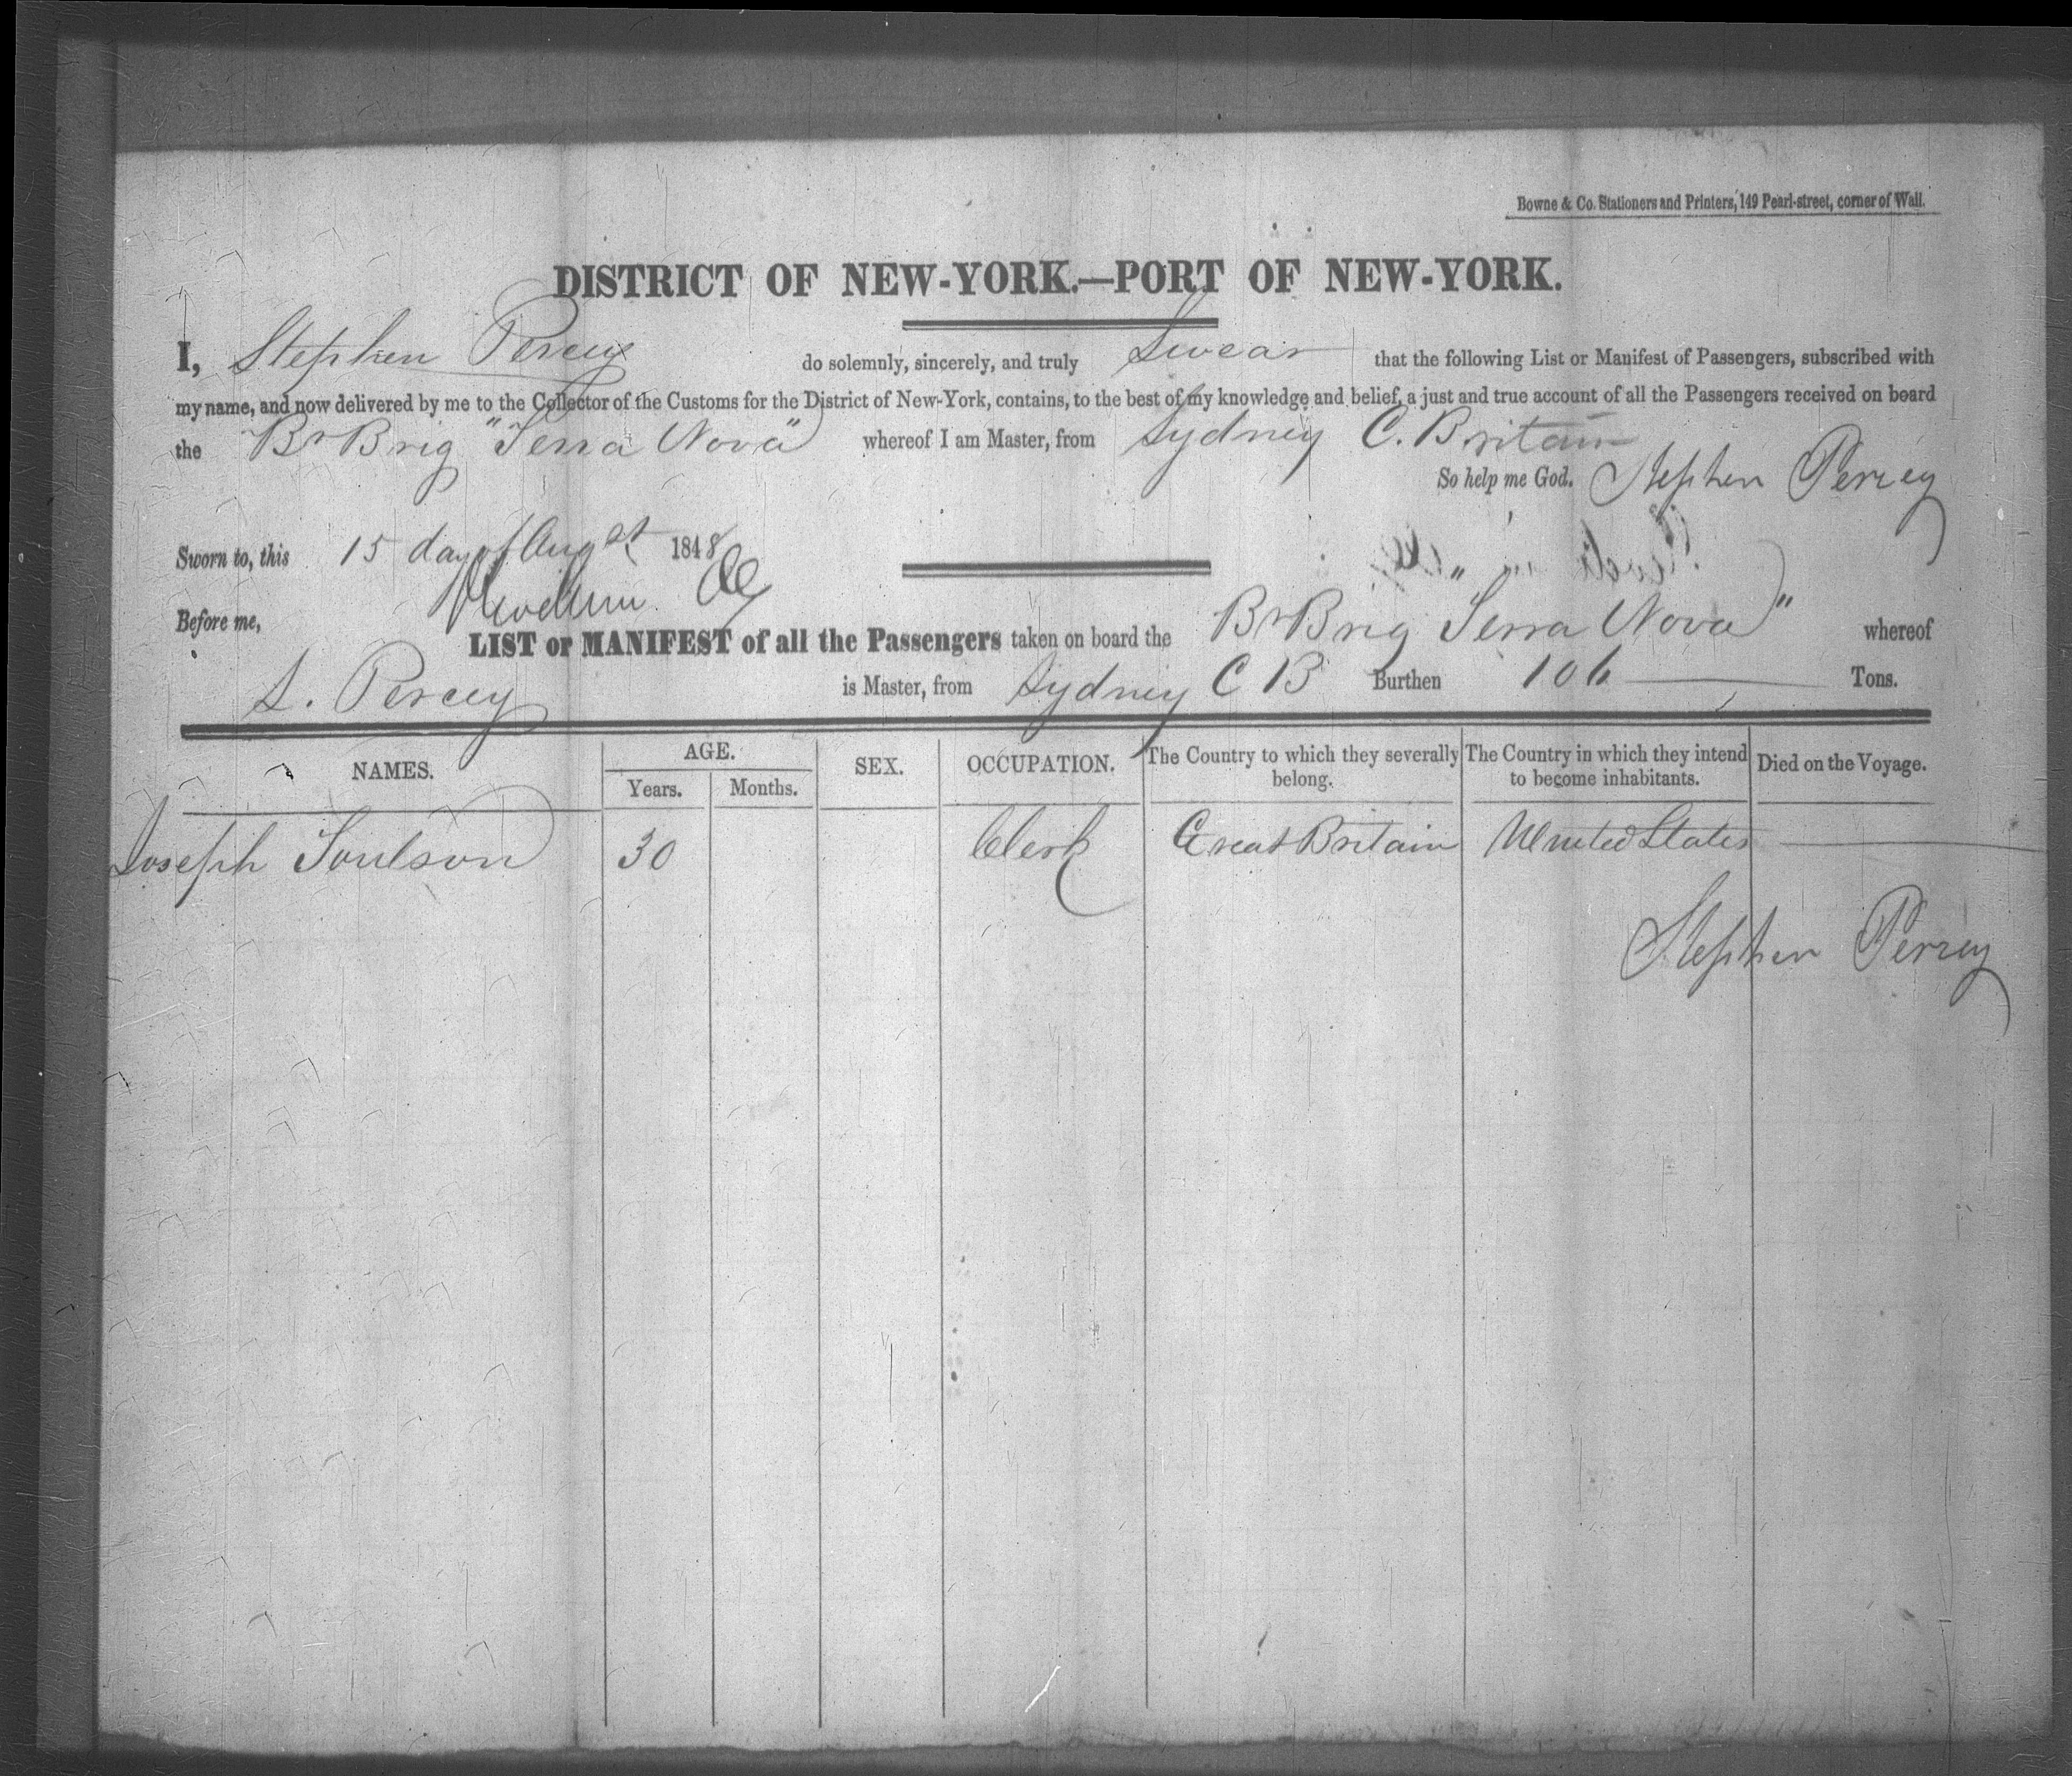 Bowne & Co. Stationers and Printers, 149 Pearl-street, corner of Wall.
DISTRICT OF NEW-YORK.—PORT OF NEW-YORK.
I, Stephen Percey do solemnly, sincerely, and truly Swear that the following List or Manifest of Passengers, subscribed with
my name, and now delivered by me to the Collector of the Customs for the District of New-York, contains, to the best of my knowledge and belief, a just and true account of all the Passengers received on board
the Br Brig "Terra Nova" whereof I am Master, from Sydney C. Britain
So help me God. Stephen Percey
Sworn to, this 15 day of Augst 1848
Before me,
LIST or MANIFEST of all the Passengers taken on board the Br Brig "Terra Nova" whereof
S. Percey is Master, from Sydney C B Burthen 106 Tons.
NAMES. AGE. SEX. OCCUPATION. The Country to which they severally belong. The Country in which they intend to become inhabitants. Died on the Voyage.
Years. Months.
Joseph Soulson 30 Clerk Great Britain United States
Stephen Percey